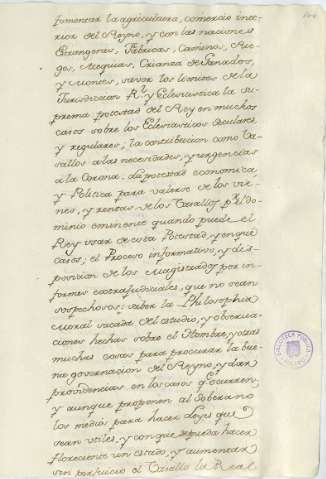 fomentar la agricultura, comercio inte-
rior del Reyno, y con las naciones
Extrangeras, Fabricas, Caminos, Rie-
gos, Azequias, Crianza de Ganados,
y Montes, saver los limites de la
Jurisdiccion Rl y Eclesiastica la su-
prema potestad del Rey en muchos
casos sobre los Eclesiasticos Seculares
y regulares, la contribucion como Va-
sallos a las necesidades, y urgencias
a la Corona. La potestad economica
y Politica para valerse de los vie-
nes, y rentas de los Vasallos pr el do-
minio eminente quando puede el
Rey usar de esta Potestad, y en que
casos; el Proceso informativo, y des-
posicion de los Magistrados por in-
formes extrajudiciales, que no sean
sospechosos; saber la Philosophia
moral sacada del estudio, y observa-
ciones hechas sobre el Hombre, y otras
muchas cosas para procurar la bue-
na governacion del Reyno, y dar
providencias en los casos qe ocurren,
y aunque proponen al Soberano
los medios para hacer Leyes que
sean utiles, y con que se pueda hacer
floreciente un estado, y aumentar
sin perjuicio el Vasallo la Real